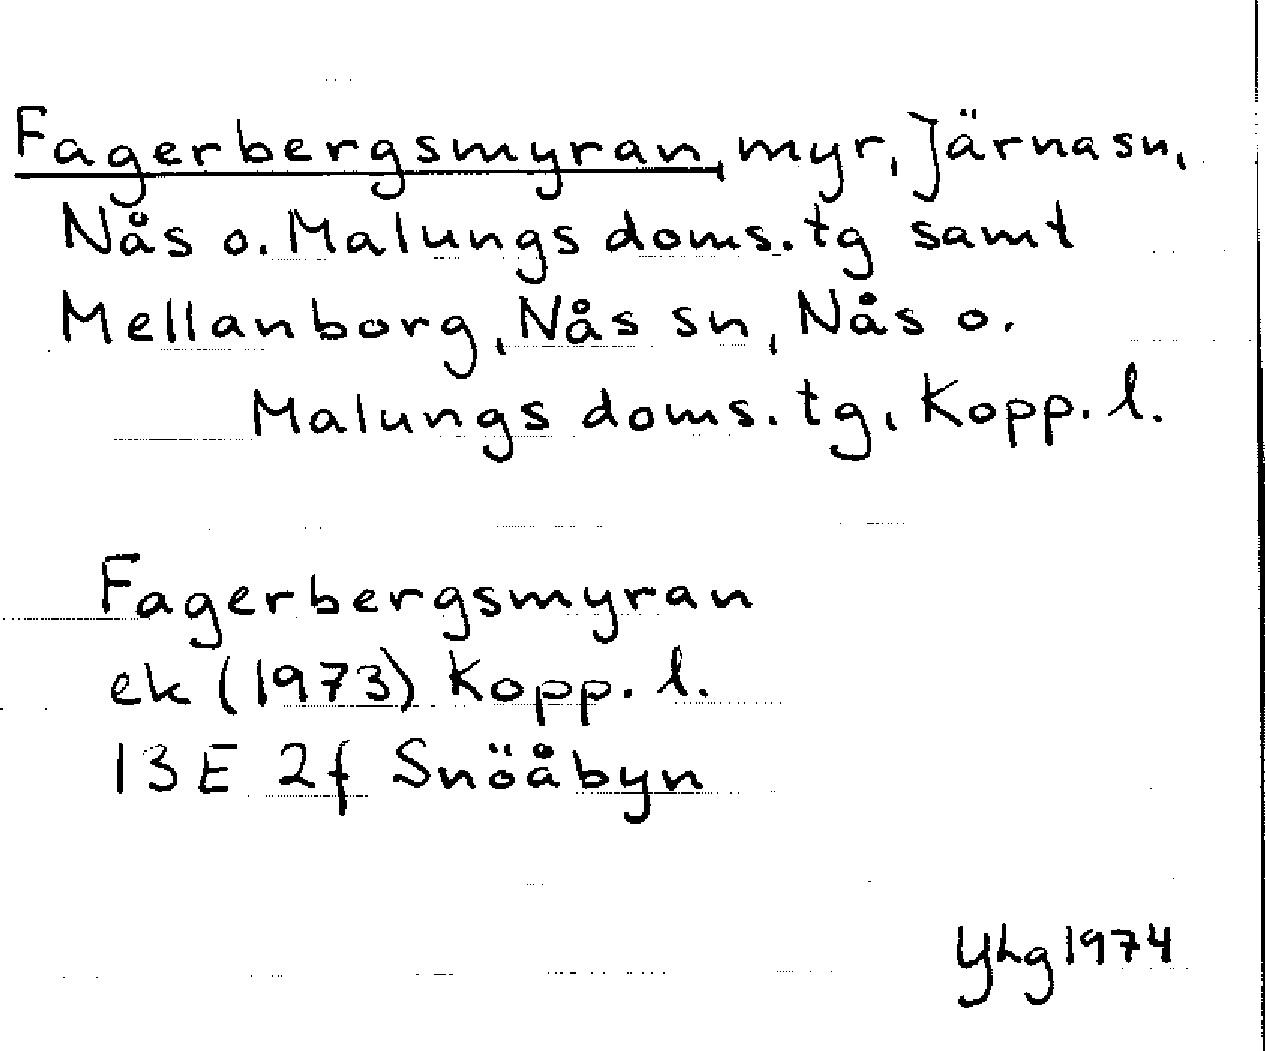 Fagerbergsmyran, myr, Järna sn,
Nås o. Malungs doms. tg samt
Mellanborg, Nås sn, Nås o.
Malungs doms. tg, Kopp. l.
Fagerbergsmyran
ek (1973) Kopp. l.
13E 2f Snöåbyn
YHg 1974